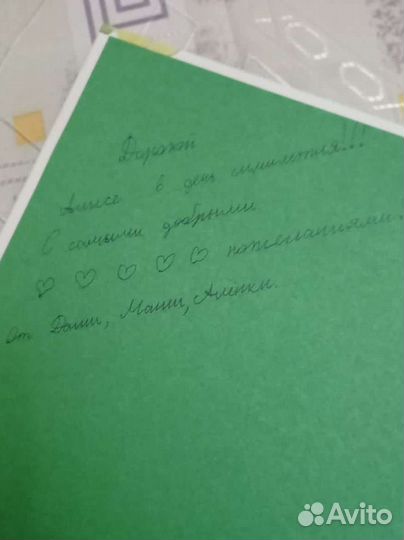 Дорогой
Алисе в день шестилетия!!!
С самыми добрыми
♡ ♡ ♡ ♡ ♡ пожеланиями!
От Даши, Маши, Алёнки.
Avito